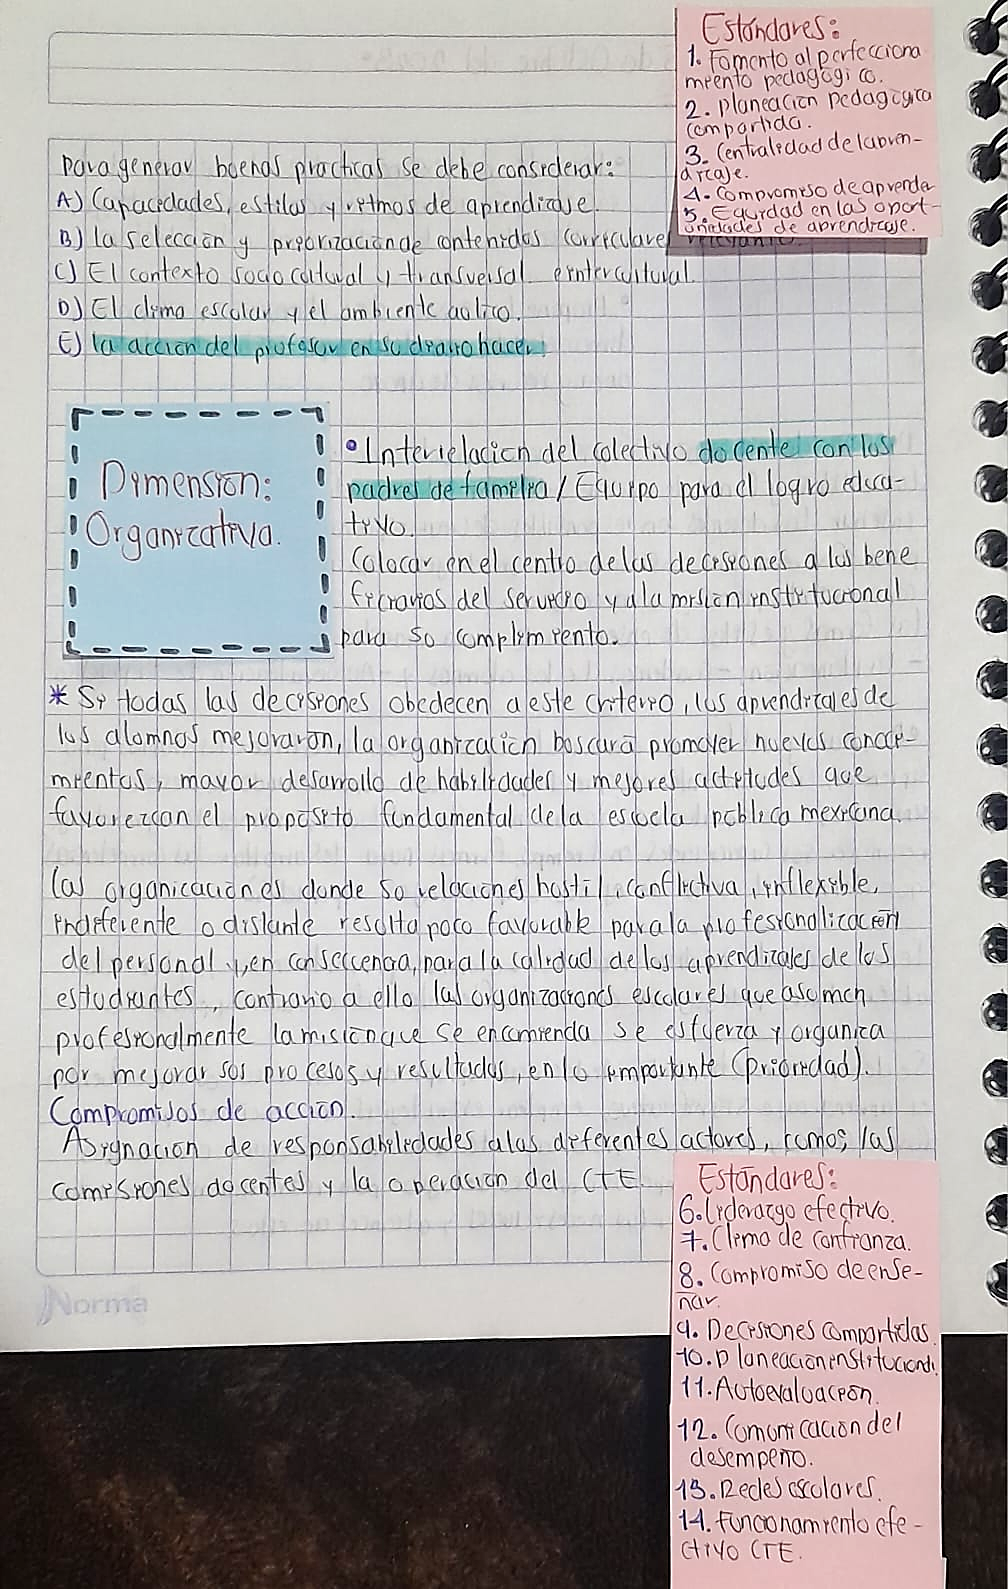 Estándares:
1. Fomento al perfecciona
miento pedagógico.
2. planeación pedagógica
compartida.
3. Centralidad del apren-
dizaje.
4. Compromiso de aprender
5. Equidad en las oport-
unidades de aprendizaje.
para generar buenas practicas se debe considerar:
A) Capacidades, estilos y ritmos de aprendizaje.
B) la selección y priorización de contenidos curriculares relevante.
C) El contexto socio cultural y transversal e intercultural.
D) El clima escolar y el ambiente aulico.
E) la acción del profesor en su diario hacer.
Dimension:
Organizativa.
• Interrelación del colectivo docente con los
padres de familia / Equipo para el logro educa-
tivo.
Colocar en el centro de las decisiones a los bene
ficiarios del servicio y a la misión institucional
para su cumplimiento.
* Si todas las decisiones obedecen a este criterio, los aprendizajes de
los alumnos mejoraron, la organización buscará promover nuevos conoci-
mientos, mayor desarrollo de habilidades y mejores actitudes que
favorezcan el proposito fundamental de la escuela publica mexicana.
las organizaciones donde su relaciones hostil, conflictiva, inflexible,
indiferente o distante resulta poco favorable para la profesionalización
del personal y, en consecuencia, para la calidad de los aprendizajes de los
estudiantes, contrario a ello las organizaciones escolares que asumen
profesionalmente la misión que se encomienda se esfuerza y organiza
por mejorar sus procesos y resultados, en lo importante (prioridad).
Compromisos de acción.
Asignación de responsabilidades a las diferentes actores, como; las
comisiones docentes y la operación del CTE.
Estándares:
6. Liderazgo efectivo.
7. Clima de confianza.
8. Compromiso de ense-
ñar.
9. Decisiones compartidas.
10. Planeación institucional.
11. Autoevaluación.
12. Comunicación del
desempeño.
13. Redes escolares.
14. Funcionamiento efe-
ctivo CTE.
Norma